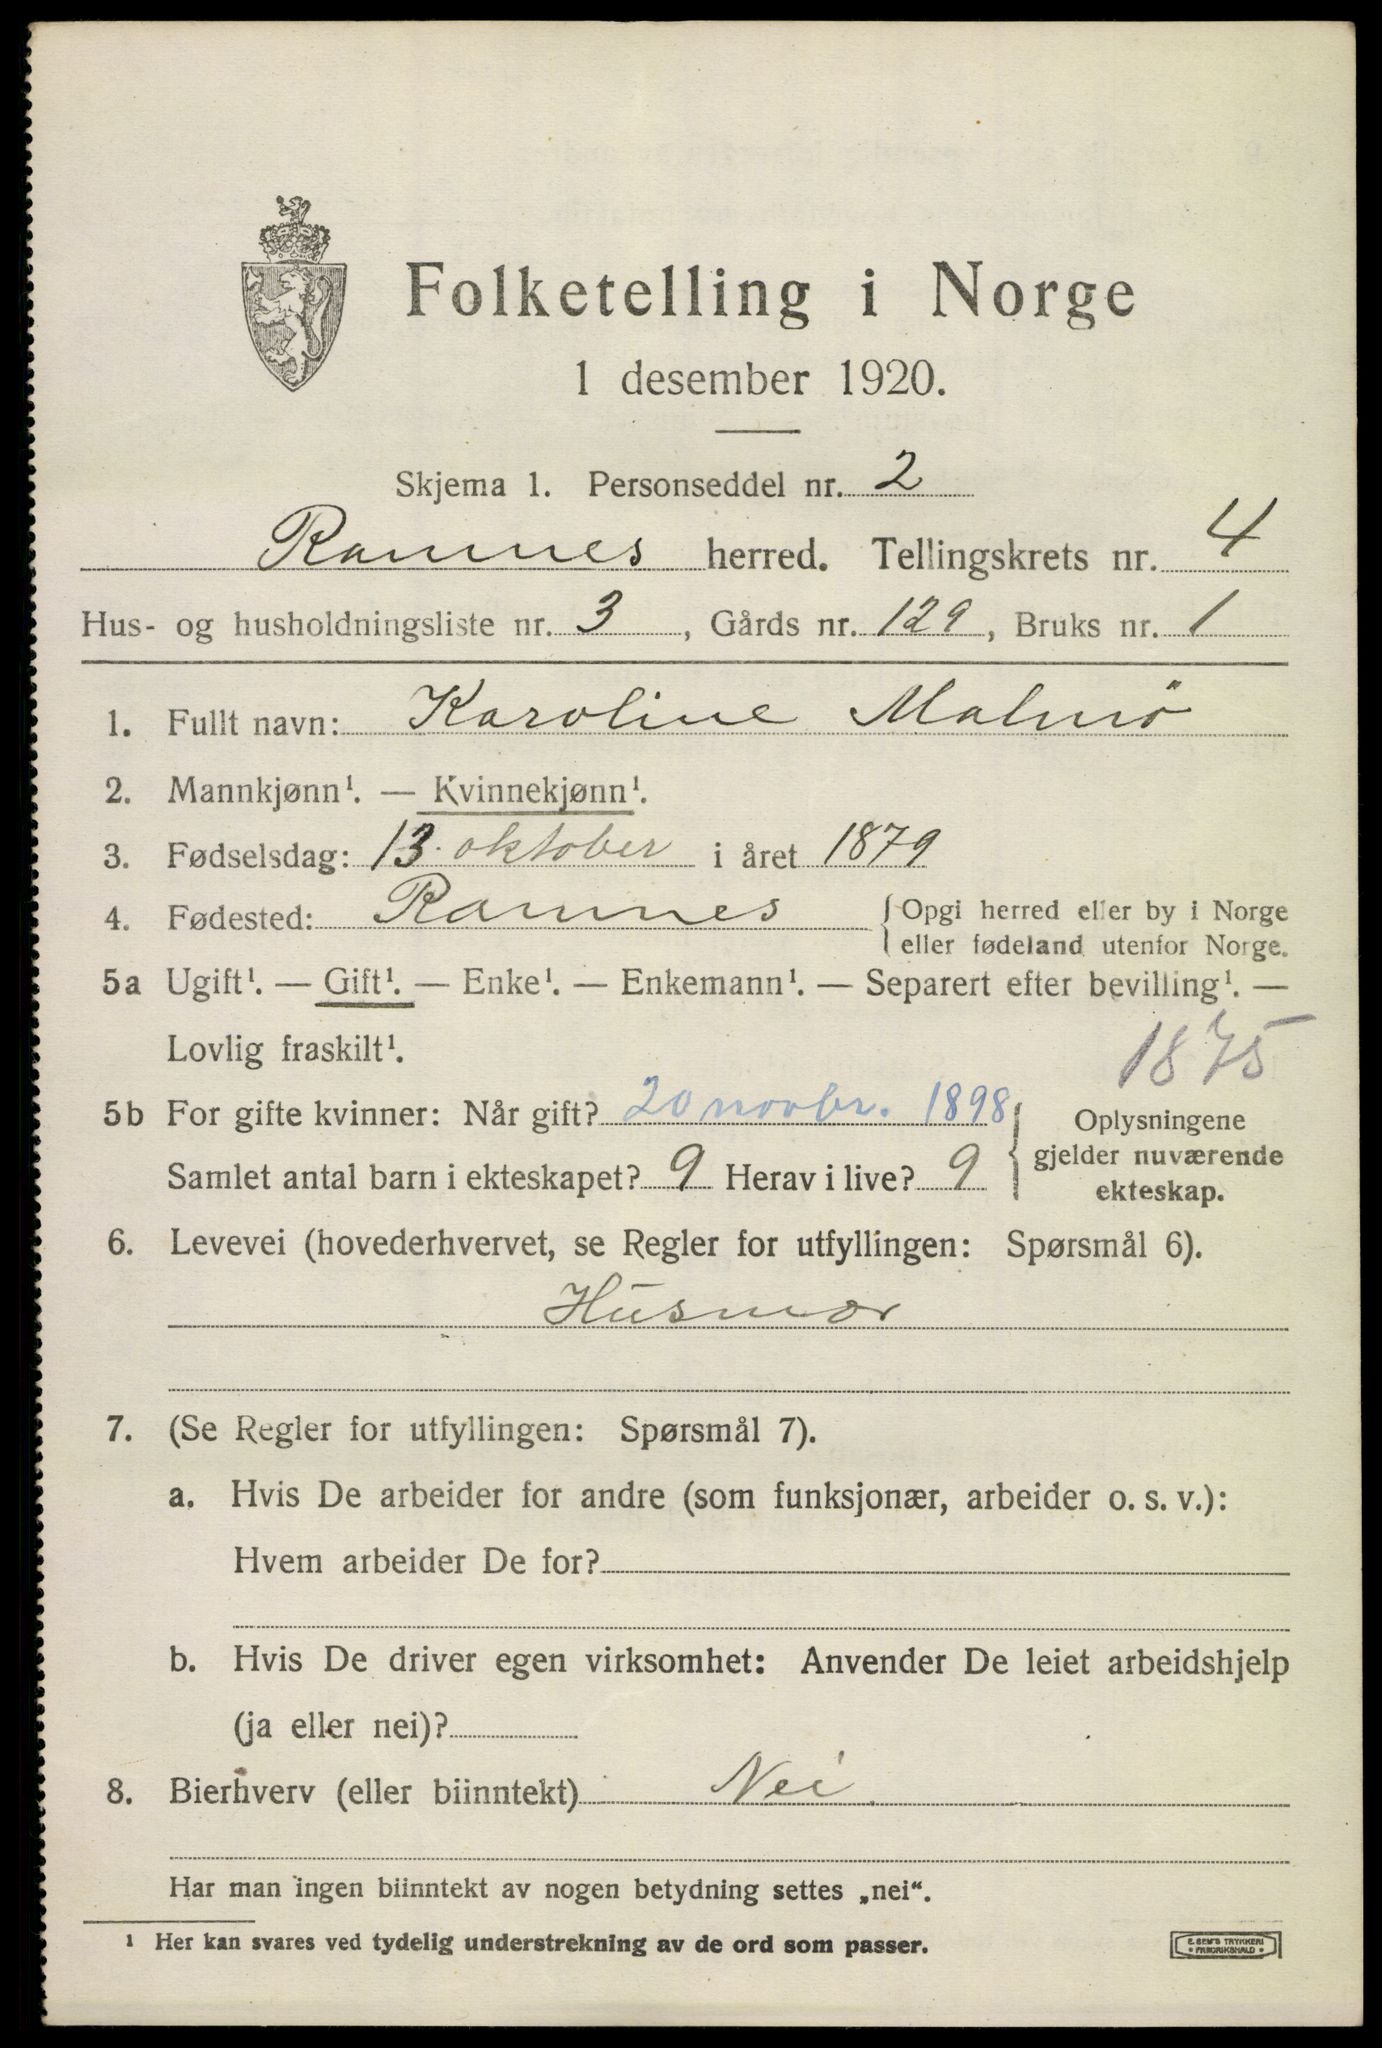 Folketelling i Norge
1 desember 1920.
Skjema 1. Personseddel nr. 2
Ramnes herred. Tellingskrets nr. 4
Hus- og husholdningsliste nr. 3, Gårds nr. 129, Bruks nr. 1
1. Fullt navn: Karoline Malmö
2. Mannkjønn¹. — Kvinnekjønn¹.
3. Fødselsdag: 13. oktober i året 1879
4. Fødested: Ramnes {Opgi herred eller by i Norge
eller fødeland utenfor Norge.
5a Ugift¹. — Gift¹. — Enke¹. — Enkemann¹. — Separert efter bevilling¹. —
Lovlig fraskilt¹.
1875
5b For gifte kvinner: Når gift? 20 novbr. 1898
Samlet antal barn i ekteskapet? 9 Herav i live? 9
} Oplysningene
gjelder nuværende
ekteskap.
6. Levevei (hovederhvervet, se Regler for utfyllingen: Spørsmål 6).
Husmor
7. (Se Regler for utfyllingen: Spørsmål 7).
a. Hvis De arbeider for andre (som funksjonær, arbeider o. s. v.):
Hvem arbeider De for?
b. Hvis De driver egen virksomhet: Anvender De leiet arbeidshjelp
(ja eller nei)?
8. Bierhverv (eller biinntekt) Nei.
Har man ingen biinntekt av nogen betydning settes „nei“.
¹ Her kan svares ved tydelig understrekning av de ord som passer.
E. SEM'S TRYKKERI
• FREDRIKSHALD •